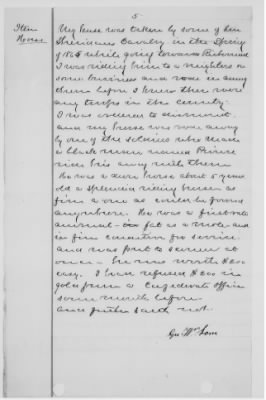 5
Item
Horse
My horse was taken by some of Gen
Sheridans Cavalry in the Spring
of 1865 while going towards Richmond
I was riding him to a neighbors on
some business and rode in among
them before I knew there were
any troops in the county.
I was ordered to dismount
and my horse was rode away
by one of the soldiers who made
a black man named Prince
ride his away with them
He was a horse about 5 years
old a splendid riding horse as
fine a one as could be found
anywhere. He was a first rate
animal - fat as a mole and
in fine condition for service
and was put to service at
once - he was worth $200
easy. I had refused $200 in
gold from a Confederate officer
some month before
and further saith not.
Geo Wm